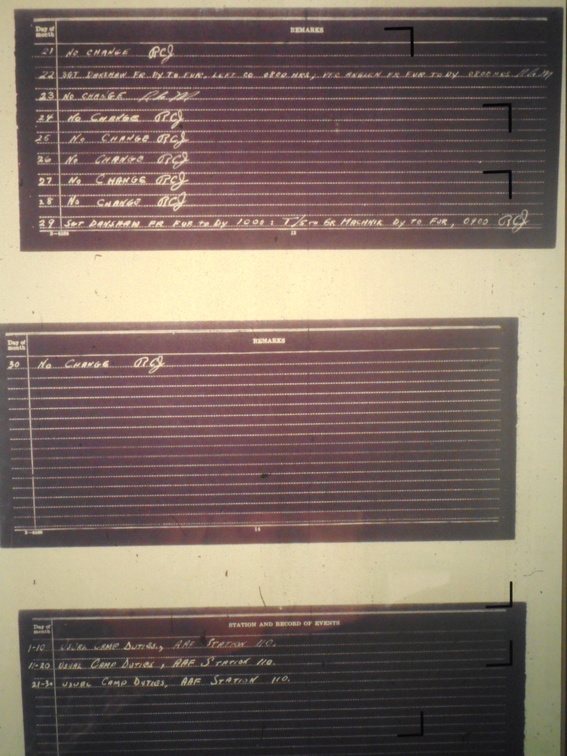 Day of
month
REMARKS
21 No CHANGE RCJ
22 SGT DANSHAW FR DY TO FUR, LEFT CO 0800 HRS, FR FUR TO DY. 0800 HRS
23 No CHANGE
24 No CHANGE RCJ
25 No CHANGE RCJ
26 No CHANGE RCJ
27 No CHANGE RCJ
28 No CHANGE RCJ
29 SGT DANSHAW FR FUR TO DY 1000: T/5 DY TO FUR, 0900 RCJ
13
Day of
month
REMARKS
30 No CHANGE RCJ
14
Day of
month
STATION AND RECORD OF EVENTS
1-10 USUAL CAMP DUTIES, AAF STATION 110.
11-20 USUAL CAMP DUTIES, AAF STATION 110.
21-30 USUAL CAMP DUTIES, AAF STATION 110.